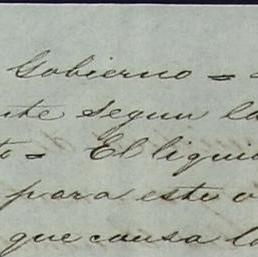 Gobierno =
nte segun la
to = El liqui
para este o
que causa la